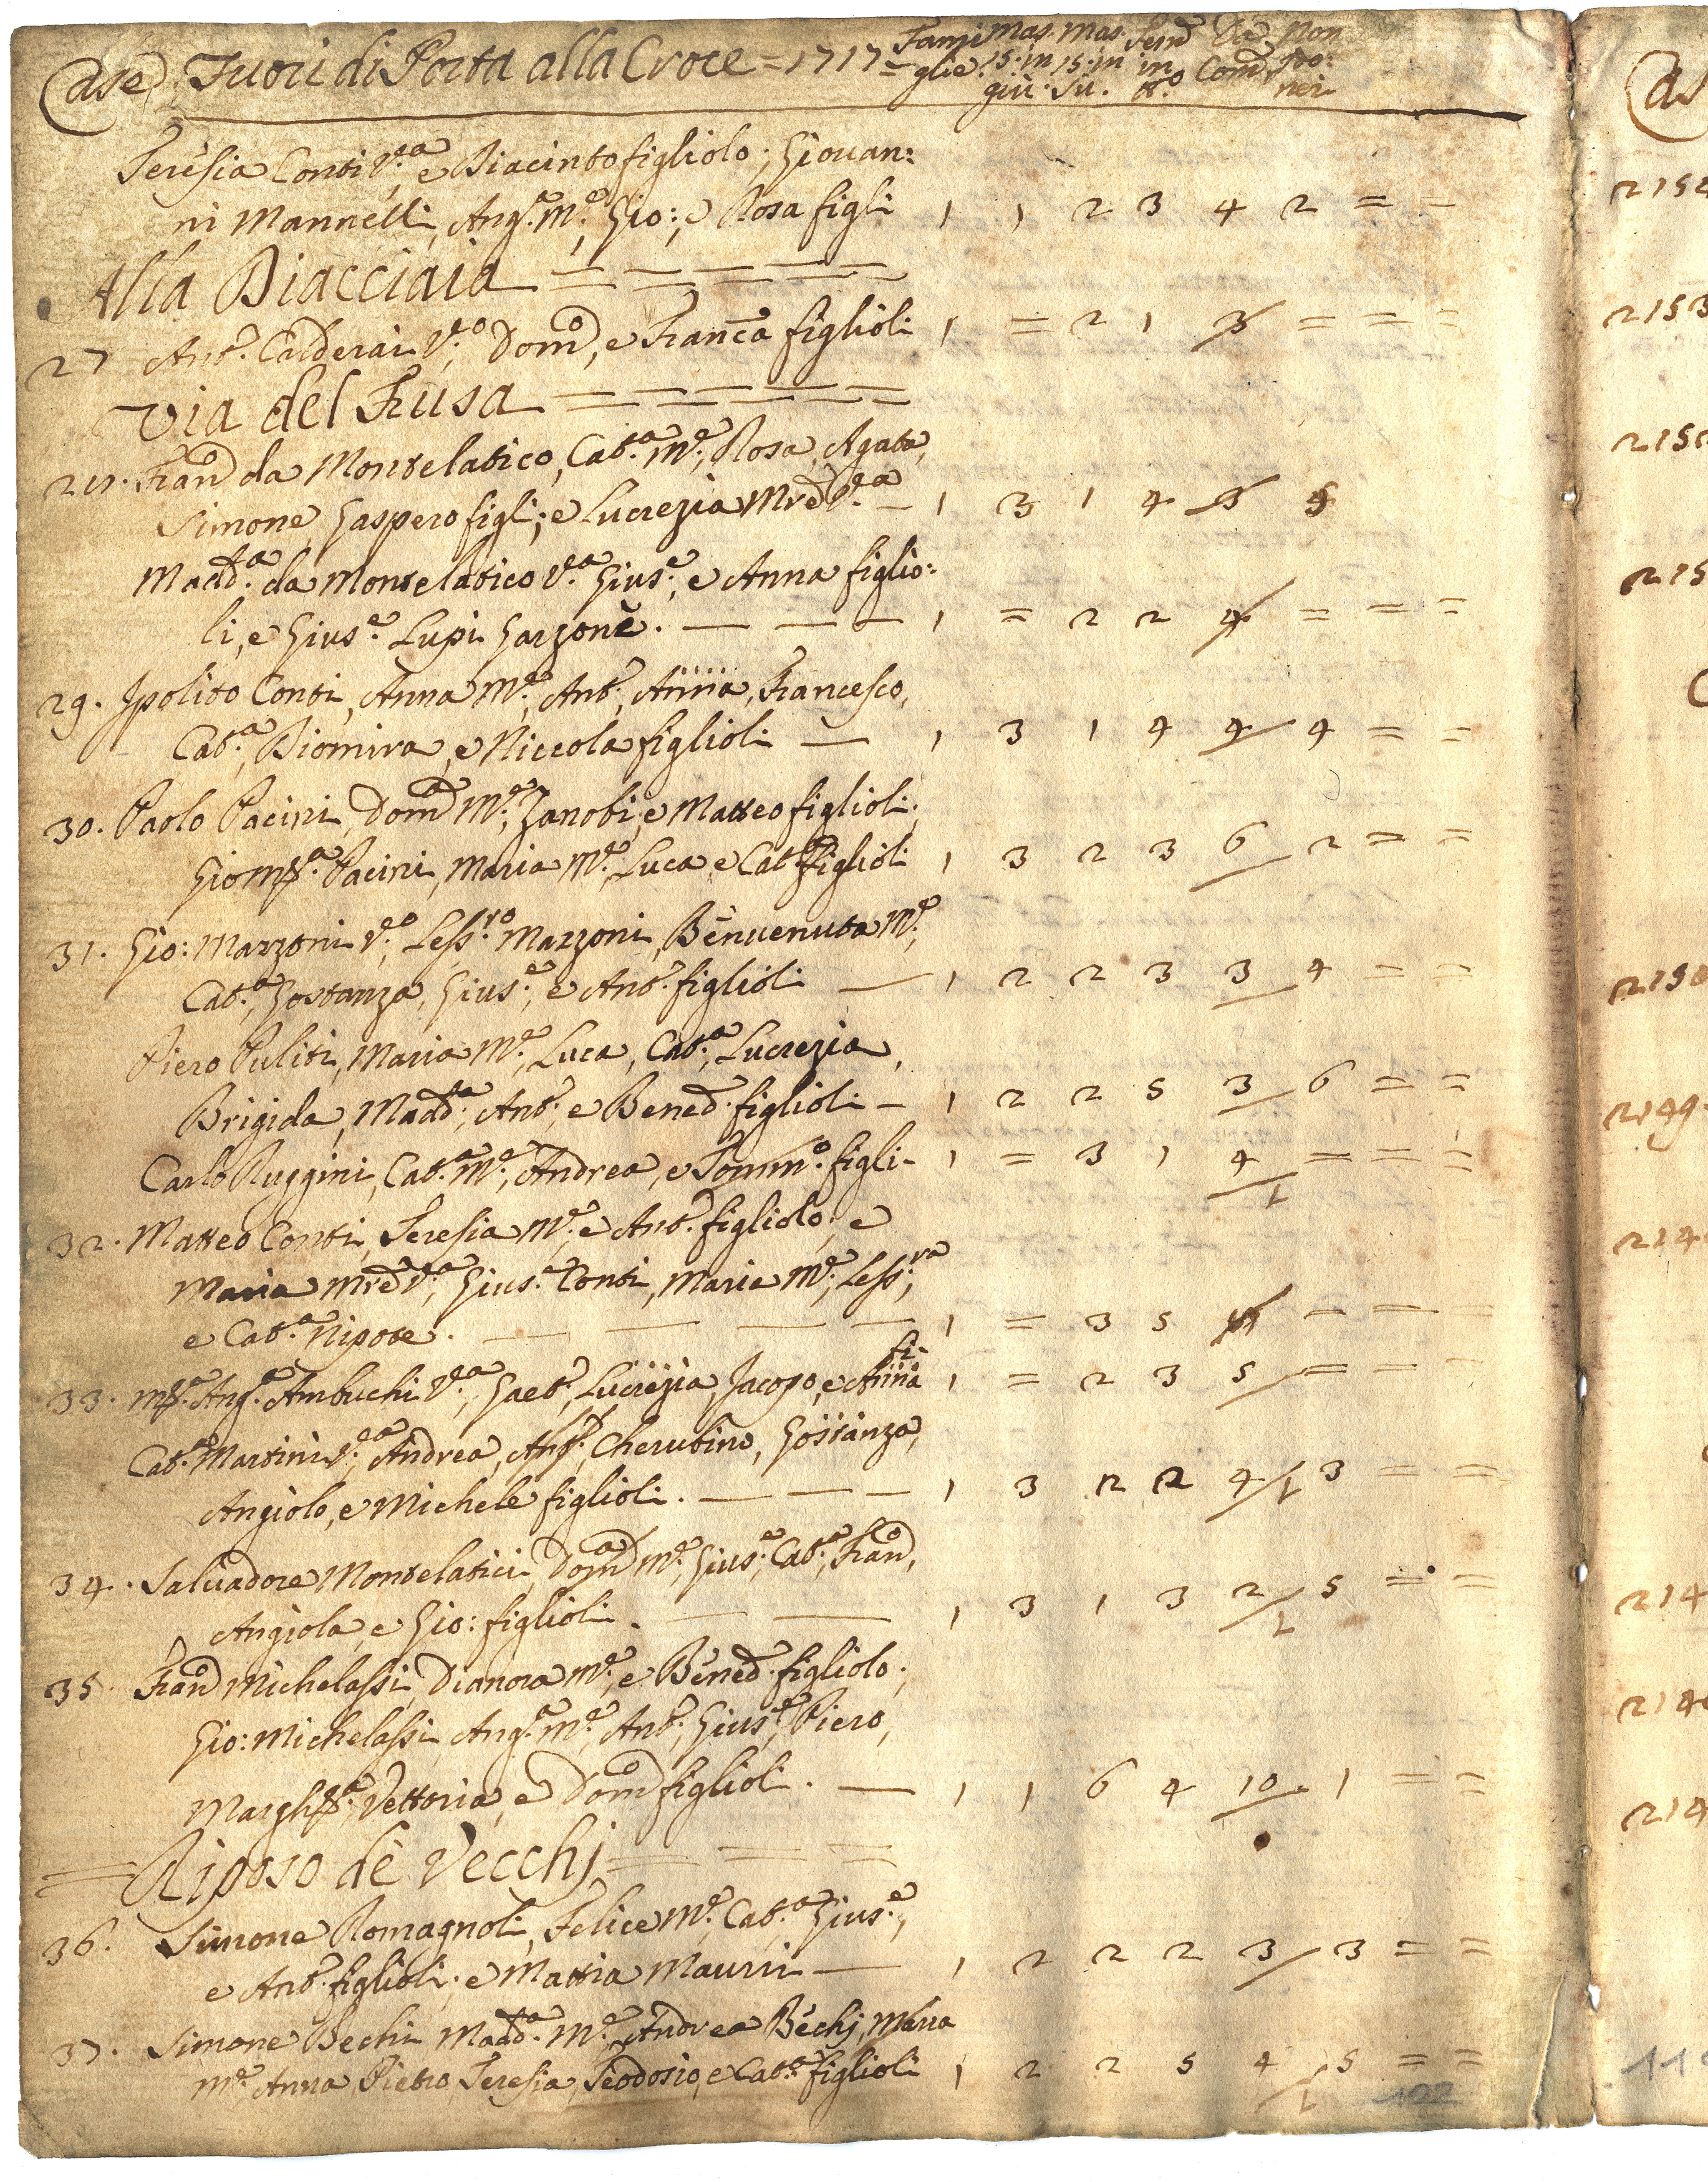 Case Fuori di Porta alla Croce = 1717 = Fami Mas. Mas. Fem̃ Da Non
glie. 15. in 15. in in Com̃ Po:
giù. Sù. tt.o ner
Teresia Conti V.a e Diacinto figliolo; Giovan:
ni Mannelli, Ang.a M.e, Gio:, e Rosa figli 1 1 2 3 4 2 = =
Alla Diacciaia = = = = =
27 Ant.o Calderai V.o, Dom.o, e Franc.a figlioli 1 = 2 1 3 = = =
Via del Frusa = = = = =
28. Fran.o da Montelatico, Cat.a M.e, Rosa, Agata,
Simone, Gaspero figli; e Lucrezia Mrẽ V.a — 1 3 1 4 3 5
Madd.a da Montelatico V.a Gius.e, e Anna figlio:
li, e Gius.e Lupi Garzone. — — — 1 = 2 2 4 = = =
29. Ipolito Conti, Anna M.e, Ant.o, Anna, Francesco,
Cat.a, Diomira, e Niccola figlioli — 1 3 1 4 4 4 = =
30. Paolo Pacini, Dom.a M.e, Zanobi, e Matteo figlioli;
Gio Mṽa. Pacini, Maria M.e, Luca e Cat.a figlioli 1 3 2 3 6 2 = =
31. Gio: Mazzoni V.o, Less.ro Mazzoni, Benvenuta M.e,
Cat.a, Gostanza, Gius.e, e Ant.o figlioli — 1 2 2 3 3 4 = =
Piero Puliti, Maria M.e, Luca, Cat.a, Lucrezia,
Brigida, Madd.a, Ant.o, e Bened.o figlioli — 1 2 2 5 3 6 = =
Carlo Ruggini, Cat.a M.e, Andrea, e Tomm.o figli — 1 = 3 1 4 = = =
1
32. Matteo Conti, Teresia M.e e Ant.o figliolo; e
Maria Mrẽ V.a, Gius.e Conti, Maria M.e, Less.ra,
e Cat.a Nipote. — — — — 1 = 3 5 = = =
fi-
33. Ang.a Ambuchi V.a, Gaet.o, Lucrezia, Jacopo, e Anna 1 = 2 3 5 = = =
Cat.a Martini V.a, Andrea, Cherubino, Gostanza,
Angiolo, e Michele figlioli. — — — 1 3 2 2 4 1 3 = =
34. Salvadore Montelatici, Dom.a M.e, Gius.e, Cat.a, Fran.o,
Angiola, e Gio: figlioli. — — 1 3 1 3 2 1 5 = =
35. Fran.o Michelassi, Dianora M.e, e Bened.o figliolo;
Gio: Michelassi, Ang.a M.e, Ant.o, Gius.e, Piero,
Margh.ta, Vettoria, e Dom.o figlioli. — 1 1 6 4 10. 1 = =
= Riposo de Vecchj = = =
36. Simone Romagnoli, Felice M.e, Cat.a, Gius.e,
e Ant.o figlioli; e Mattia Maurri — 1 2 2 2 3 3 = =
37. Simone Bechi Madd.a M.e, Andrea Bechj, Maria
M.e, Anna, Pietro, Teresia, Teodosio, e Cat.a figlioli 1 2 2 5 4 1 5 = =
102